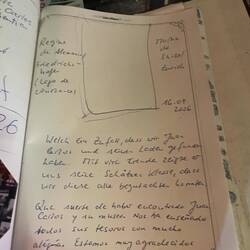 Regine
de Alemania
Friedrichs-
hafen
Lago de
16.09.
2006
Welch ein Zufall, dass wir Juan
Carlos und seinen Laden gefunden
haben. Mit viel Freude zeigte er
uns seine Schätze klasse, dass
wir diese alle begutachten konnten.
Que suerte de haber encontrado Juan
Carlos y su museo. Nos ha enseñado
todos sus tesoros con mucha
alegría. Estamos muy agradecidos